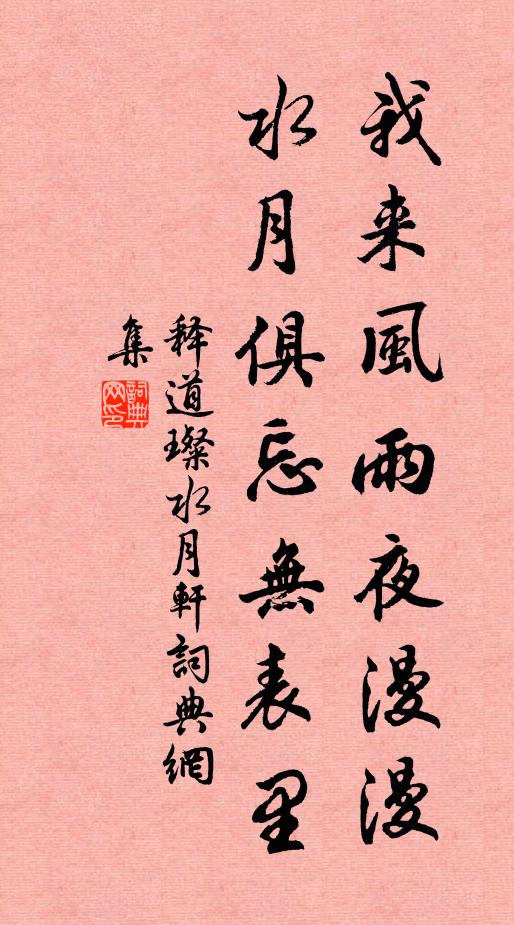 我来風雨夜漫漫
水月俱忘無表里
释道璨水月軒詞典網
集
詞典網印